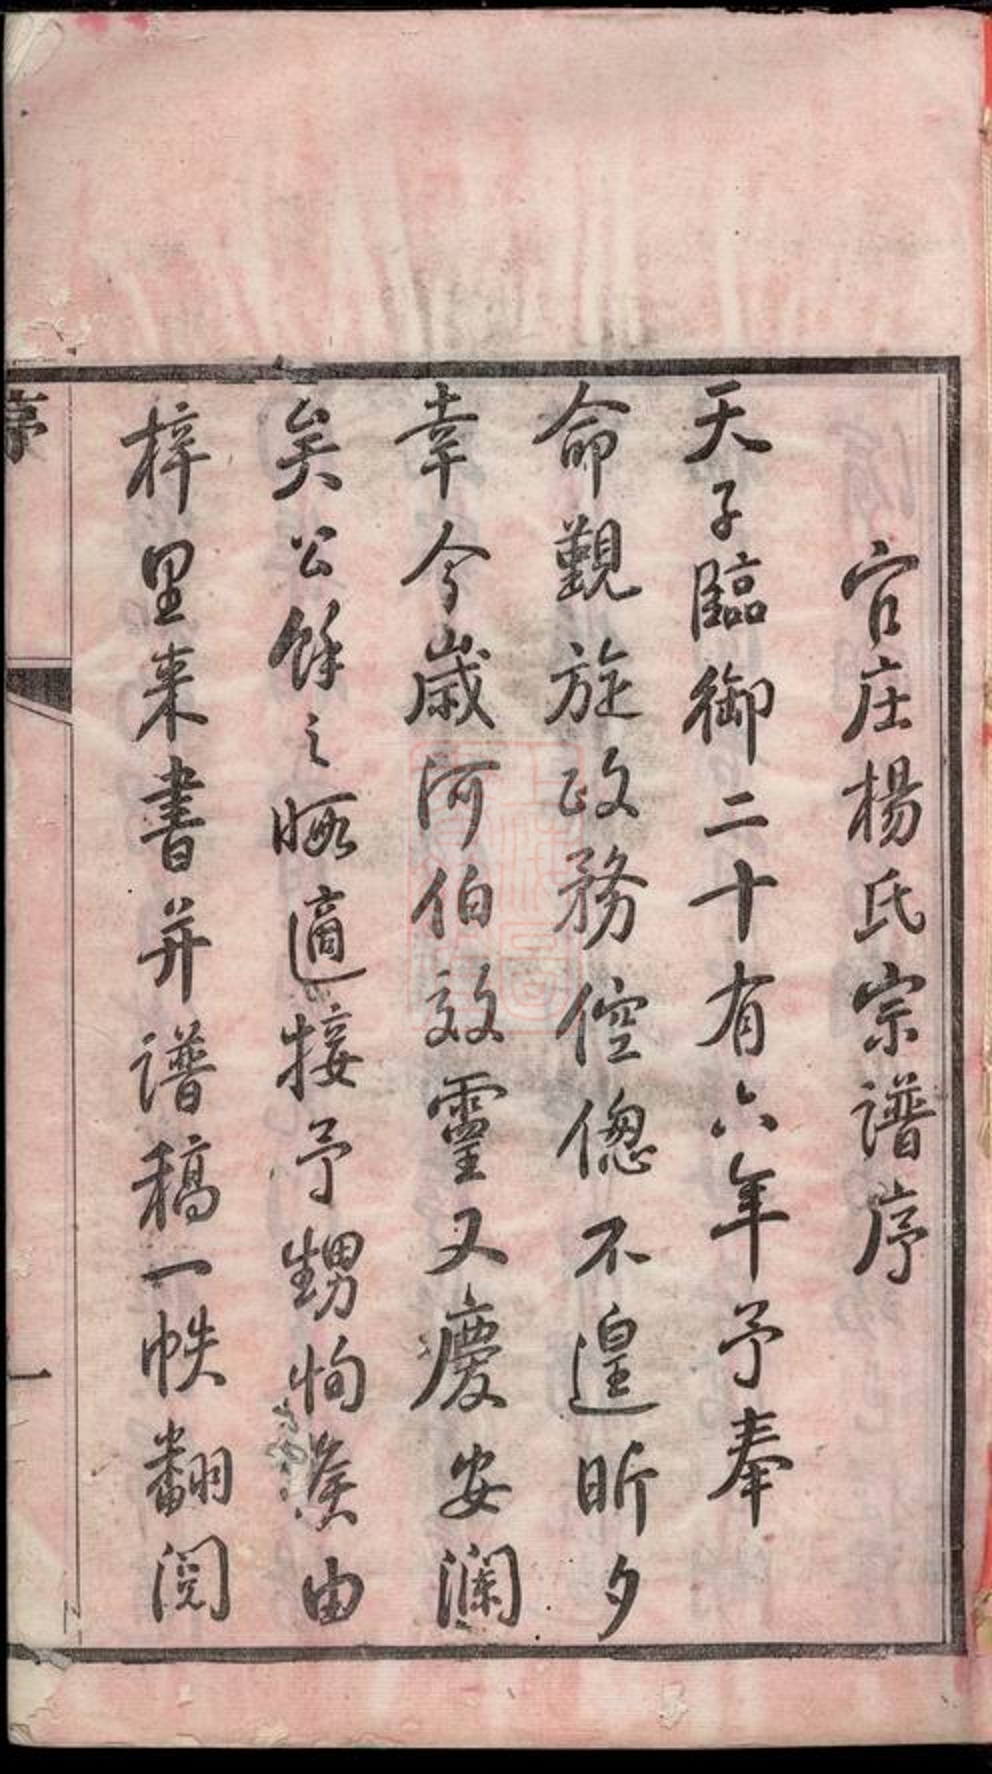 官庄楊氏宗谱序
天子臨御二十有六年予奉
命觐旋政務倥偬不遑昕夕
幸今歲河伯效靈又慶安瀾
矣公餘之暇適接予甥恂侯由
梓里来書并谱稿一帙翻阅
序
一